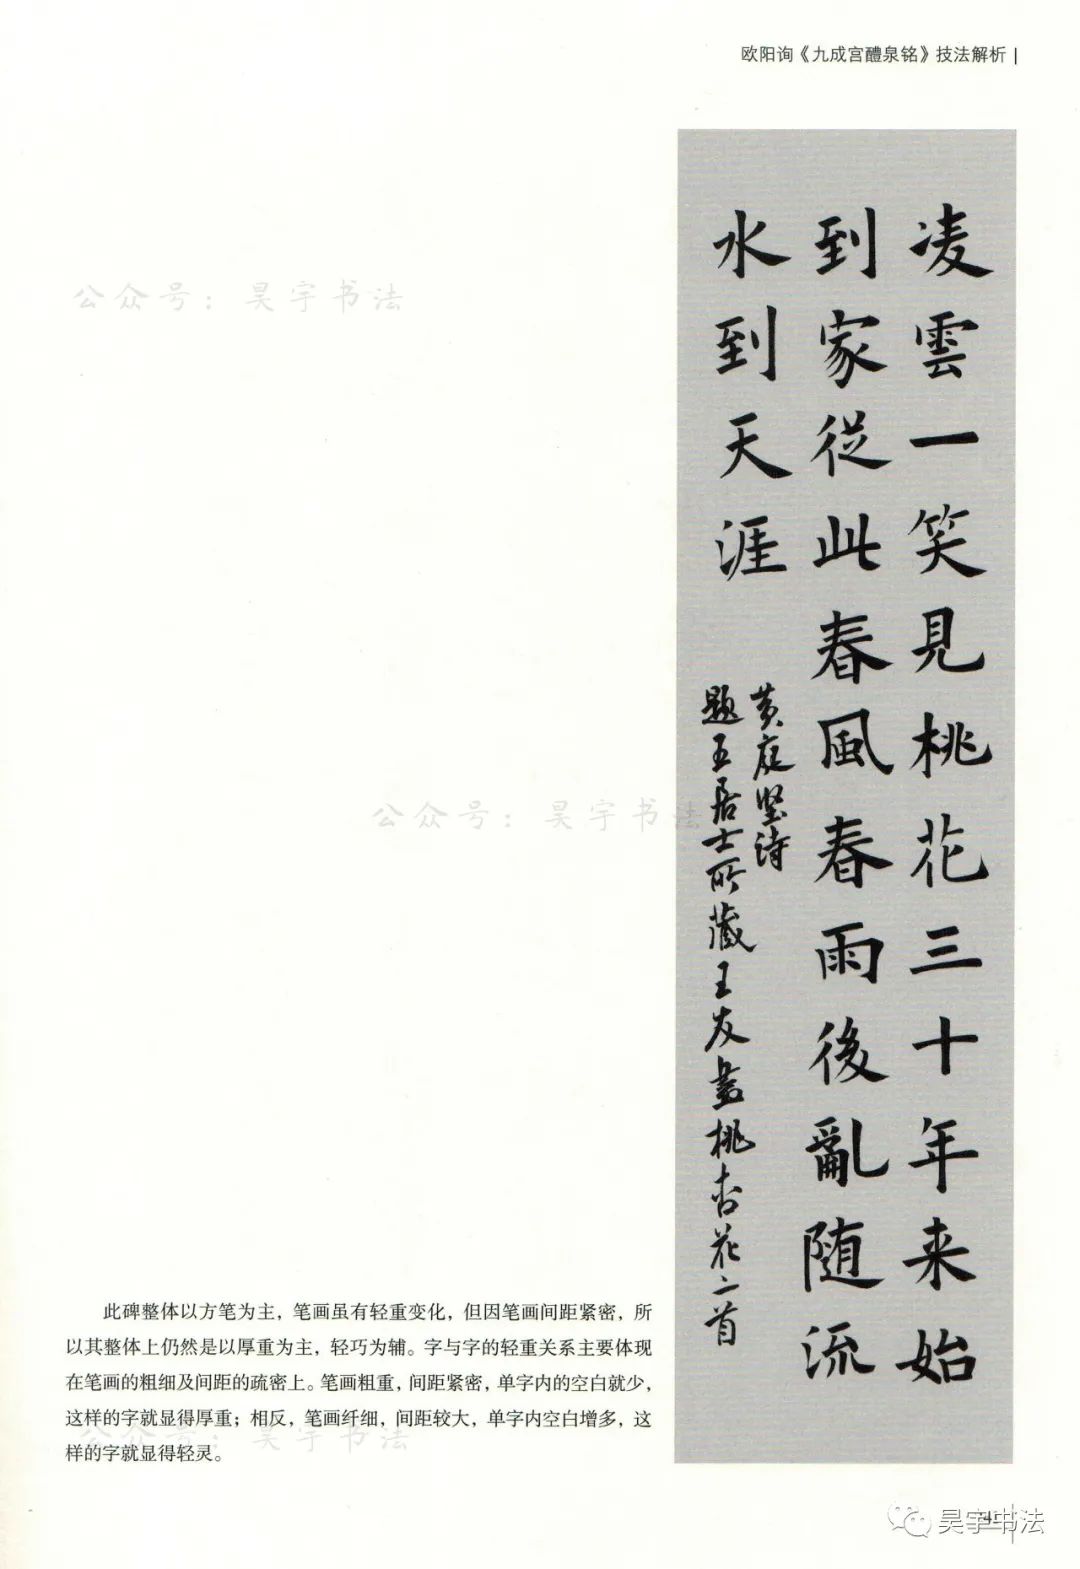 欧阳询《九成宫醴泉铭》技法解析
凌雲一笑見桃花三十年来始
到家従此春風春雨後亂随流
水到天涯
黄庭坚诗
题王居士所藏王友畫桃杏花二首
公众号：昊宇书法
公众号：昊宇书法
此碑整体以方笔为主，笔画虽有轻重变化，但因笔画间距紧密，所
以其整体上仍然是以厚重为主，轻巧为辅。字与字的轻重关系主要体现
在笔画的粗细及间距的疏密上。笔画粗重，间距紧密，单字内的空白就少，
这样的字就显得厚重；相反，笔画纤细，间距较大，单字内空白增多，这
样的字就显得轻灵。
公众号：昊宇书法
昊宇书法